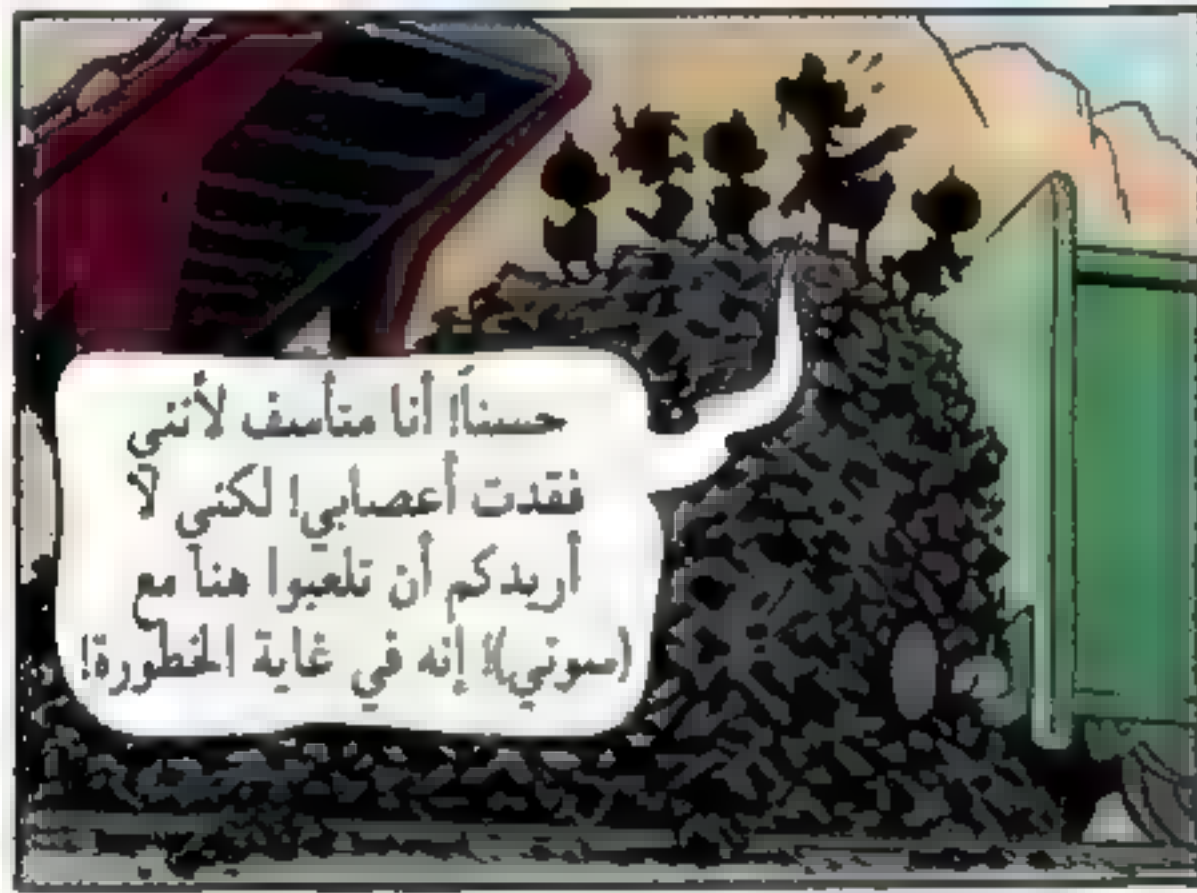 حسناً! أنا متأسف لأنني
فقدت أعصابي! لكني لا
أريدكم أن تلعبوا هنا مع
(سوتي)! إنه في غاية الخطورة!